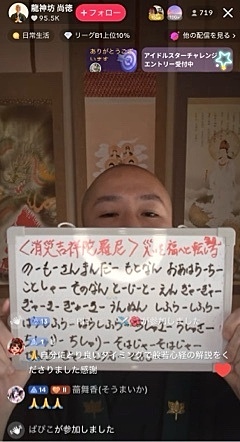 龍神坊 尚徳
95.5K
+フォロー
719
日常生活
リーグB1上位10%
他の配信を見る >
ありがとうござ
います
アイドルスターチャレンジ
エントリー受付中
<消災吉祥陀羅尼> 災いを福へと転ずる
のーもーさんまんだー もとなん おあはらーちー
ことしゃー そのなん とーじーとー えん ぎゃーぎゃー
ぎゃーきーぎゃーきー うんぬん しふらーしふらー
はらしふらーはらしふらー
ちしゅりー ちしゅりー
そはじゃーそはじゃー
自分により良いタイミングで般若心経の解説をく
ださりました感謝
14 II 薑舞香(そうまいか)
🙏🙏🙏
ぱぴこが参加しました